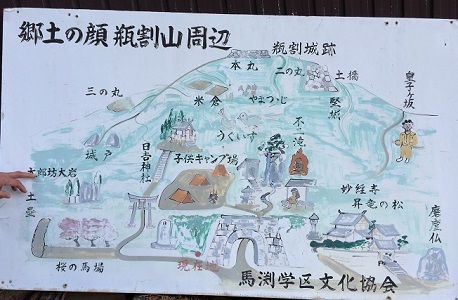 郷土の顔 瓶割山周辺
瓶割城跡
本丸
二の丸
土橋
皇子ヶ坂
三の丸
米倉
やまつつじ
竪堀
うぐいす
不二滝
城戸
日吉神社
子供キャンプ場
太郎坊大岩
土塁
妙経寺
昇竜の松
磨崖仏
桜の馬場
現在地
馬渕学区文化協会